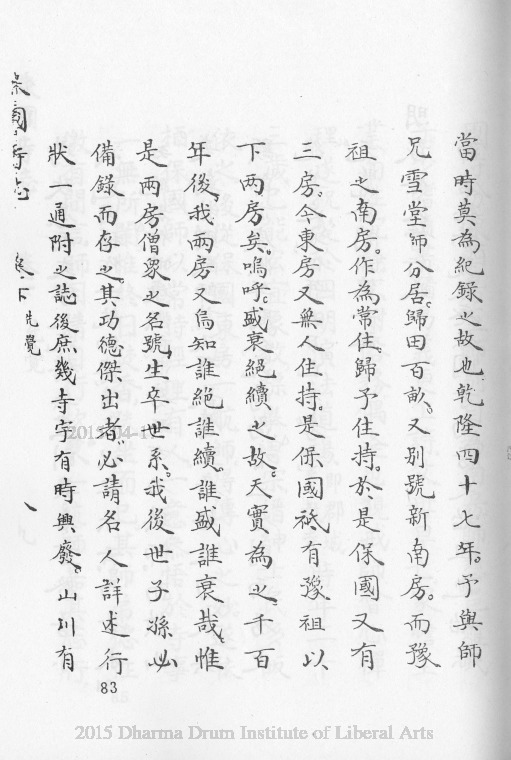 當時莫為紀錄之故也乾隆四十七年。予與師
兄雪堂師分居。歸田百畝。又別號新南房。而豫
祖之南房。作為常住。歸予住持。於是保國又有
三房。今東房又無人住持。是保國祇有豫祖以
下兩房矣。嗚呼。盛衰絕續之故。天實為之。千百
年後。我兩房又烏知誰絕誰續。誰盛誰衰哉。惟
是兩房僧眾之名號。生卒世系。我後世子孫必
備錄而存之。其功德傑出者。必請名人詳述行
狀一通附之誌後庶幾寺宇有時興廢。山川有
保國寺志 卷下 先覺
83
2015-04-1
2015 Dharma Drum Institute of Liberal Arts